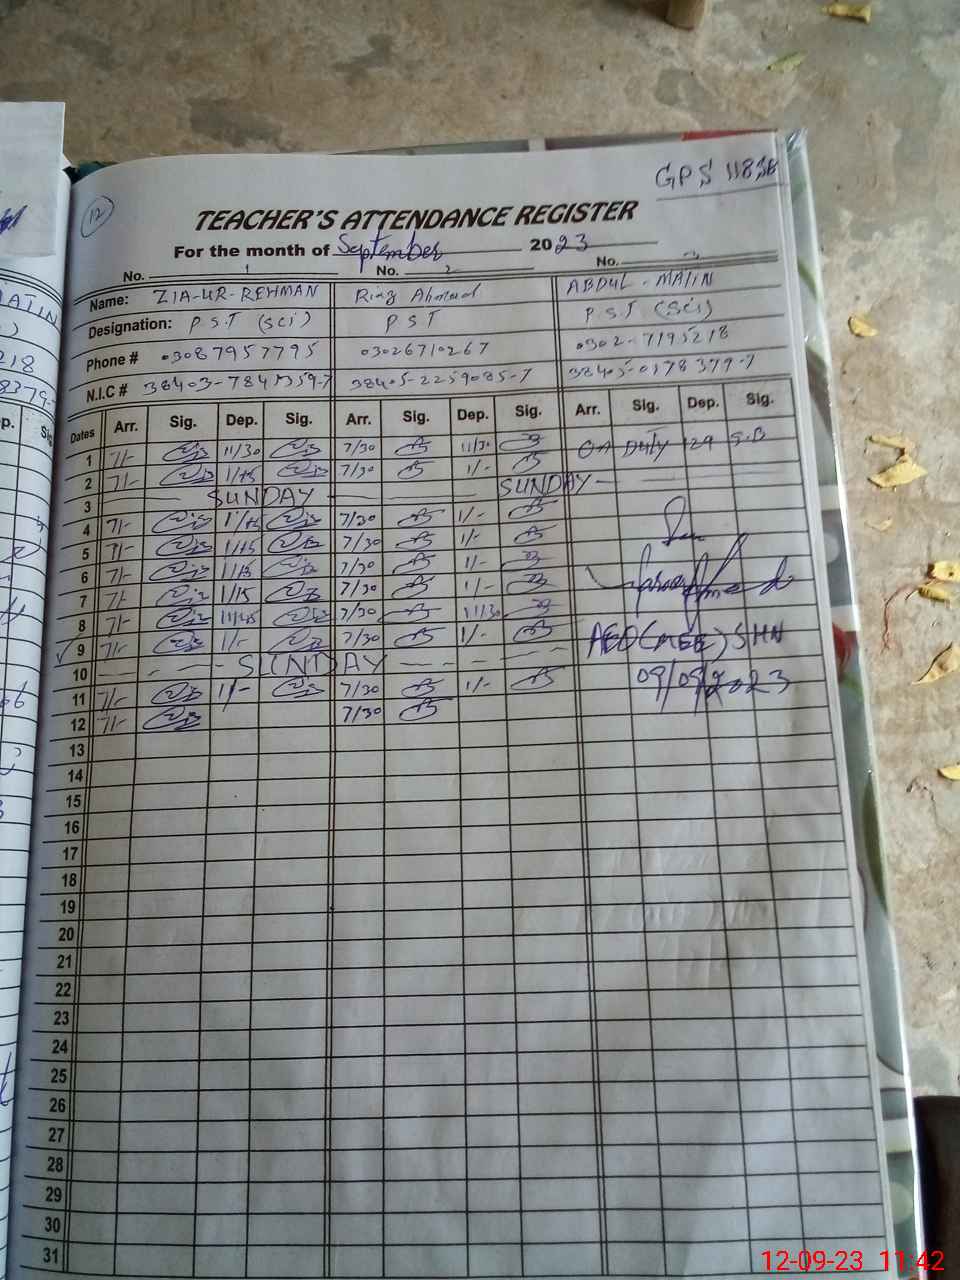 GPS 118SB
12
TEACHER'S ATTENDANCE REGISTER
For the month of September 2023
No. 1 No. 2 No. 3
Name: ZIA-UR-REHMAN Riaz Ahmad ABDUL-MATIN
Designation: P.S.T (Sci) PST P.S.T (Sci)
Phone # 03087957795 03026710267 0302-7195218
N.I.C # 38405-2259085-7 38405-0178379-7
Dates Arr. Sig. Dep. Sig. Arr. Sig. Dep. Sig. Arr. Sig. Dep. Sig.
1 7/- 11/30 7/30 11/30 On Duty 129 S.B
2 7/- 1/15 7/30 1/-
3 SUNDAY SUNDAY
4 7/- 1/15 7/30 1/-
5 7/- 1/15 7/30 1/-
6 7/- 1/15 7/30 1/-
7 7/- 1/15 7/30 1/-
8 7/- 11/45 7/30 11/30
9 7/- 1/- 7/30 1/- AEO (MEE) SHN
10 SUNDAY
11 7/- 1/- 7/30 1/- 09/09/2023
12 7/- 7/30
13
14
15
16
17
18
19
20
21
22
23
24
25
26
27
28
29
30
31
12-09-23 11:42